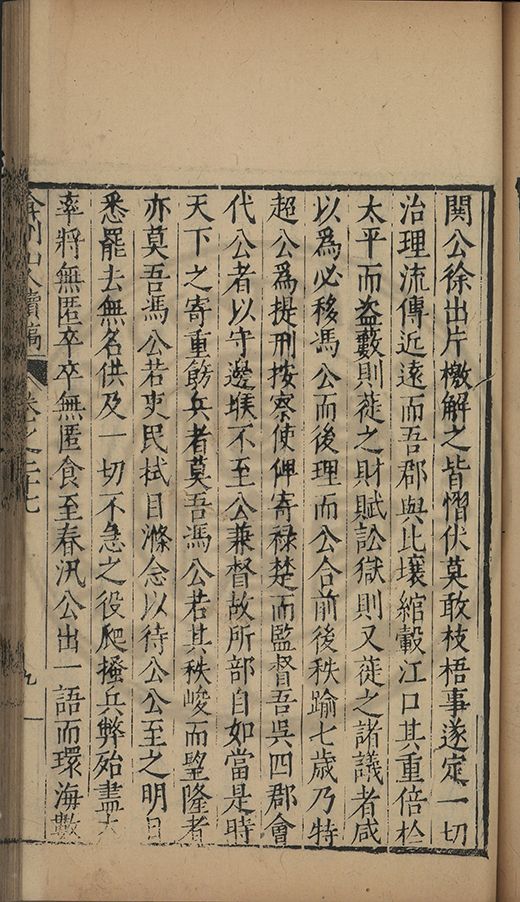 鬨公徐出片檄解之皆慴伏莫敢枝梧事遂定一切
治理流傳近遠而吾郡與比壤綰轂江口其重倍於
太平而盗藪則蓰之財賦訟獄則又蓰之諸議者咸
以爲必移馮公而後理而公合前後秩踰七歲乃特
超公爲提刑按察使俾寄禄楚而監督吾吳四郡會
代公者以守邊堠不至公兼督故所部自如當是時
天下之寄重飭兵者莫吾馮公若其秩峻而望隆者
亦莫吾馮公若吏民拭目滌念以待公公至之明日
悉罷去無名供及一切不急之役爬搔兵弊殆盡大
率將無匿卒卒無匿食至春汛公出一語而環海數
山人續稿 卷之二十七 九